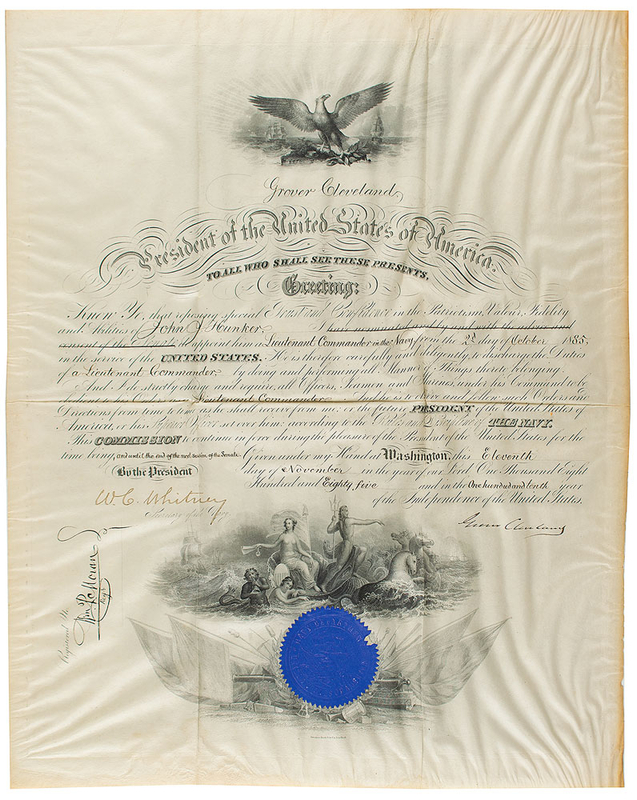 Grover Cleveland,
President of the United States of America.
TO ALL WHO SHALL SEE THESE PRESENTS,
Greeting:
Know Ye, that reposing special Trust and Confidence in the Patriotism, Valour, Fidelity
and Abilities of John J. Hunker, I have nominated and by and with the advice and
consent of the Senate do appoint him a Lieutenant Commander in the Navy from the 2d day of October 1885,
in the service of the UNITED STATES. He is therefore carefully and diligently to discharge the Duties
of a Lieutenant Commander by doing and performing all Manner of Things thereto belonging.
And I do strictly charge and require all Officers, Seamen and Marines, under his Command to be
obedient to his Orders as a Lieutenant Commander And he is to observe and follow such Orders and
Directions from time to time as he shall receive from me, or the future PRESIDENT of the United States of
America, or his Superior Officer set over him, according to the Rules and Discipline of THE NAVY.
This COMMISSION to continue in force during the pleasure of the President of the United States for the
time being, and until the end of the next session of the Senate.
Given under my Hand at Washington, this Eleventh
By the President
day of November in the year of our Lord One Thousand Eight
Hundred and Eighty five and in the One hundred and tenth year
of the Independence of the United States.
W. C. Whitney
Secretary of the Navy
Grover Cleveland
Registered No.